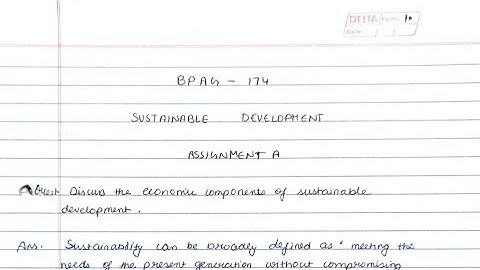 DELTA Pg No. 1
Date
BPAG - 174
SUSTAINABLE DEVELOPMENT
ASSIGNMENT A
Ques1. Discuss the economic components of sustainable
development.
Ans. Sustainability can be broadly defined as "meeting the
needs of the present generation without compromising